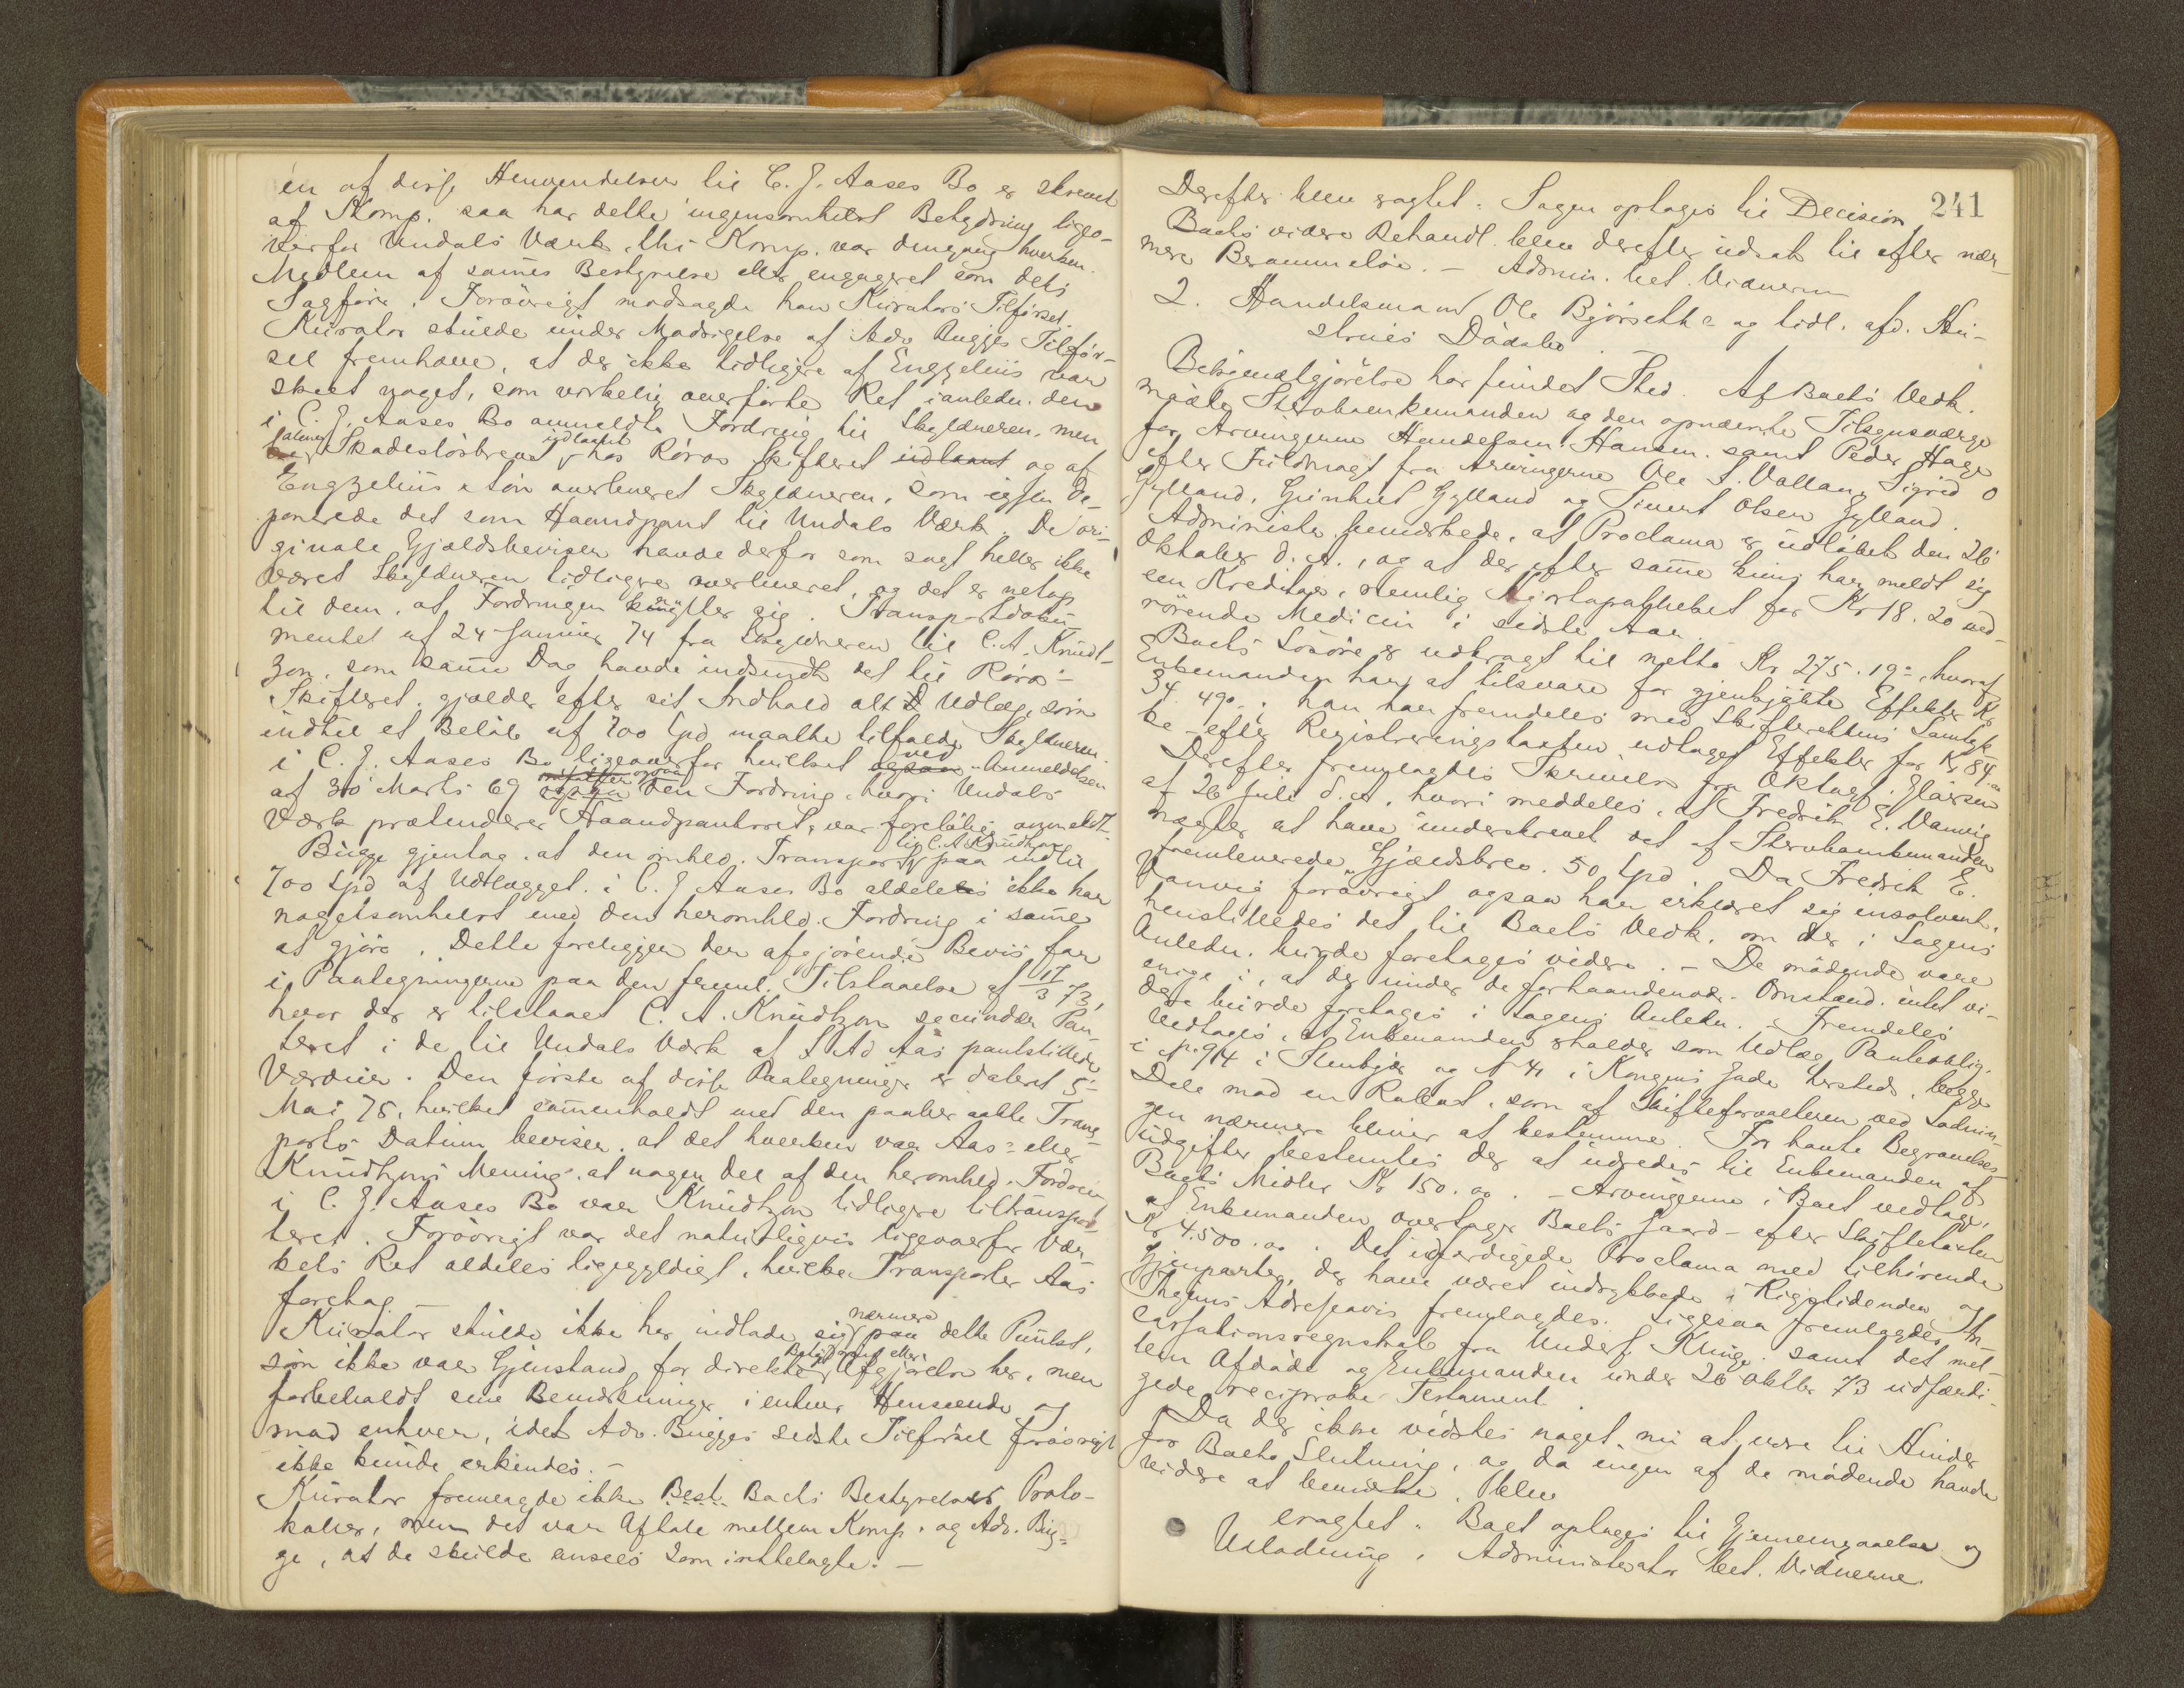 en af disse Henvendelser til C. J. Aases Bo er skrevet
af Komp. saa har dette ingensomhelst Betydning ligeo-
verfor Undals Værk, thi Komp. var dengang hverken
Medlem af sam̅es Bestyrelse eller engageret som dets
Sagfører. Forøvrigt modsagde han Kurators Tilførsel.
Kurator skulde under Modsigelse af Adv. Bugges Tilfør-
sel fremhæve, at der ikke tidligere af Engzelius var
skeet noget, som virkelig overførte Ret i anledn. den
i C. J. Aases Bo anmeldte Fordring til Skyldneren, men
Skadesløsbrevet udlaant hos Røros Skifteret udlaant og af
Engzelius & Søn overleveret Skyldneren, som igjen de-
ponerede det som Haandpant til Undals Værk. De ori-
ginale Gjældsbeviser havde derfor som sagt heller ikke
været Skyldneren tidligere overleveret, og det er netop
til dem, at Fordringen knytter sig. Transportdoku-
mentet af 24 Januar 74 fra Skyldneren til C. A. Knudt-
zon, som sam̅e Dag havde indsendt det til Røros
Skifteret, gjælder efter sit Indhold alt Udlæg, som
indtil et Beløb af 700 Spd maatte tilfalde Skyldneren
i C. J. Aases Bo ligeoverfor hvilket ogsaa ved Anmeldelsen
af 30 Marts 69 ogsaa den Fordring, hvori Undals
Værk prætenderer Haandpanteret, var foreløbig anmeldt.
Bugge gjentog, at den omhld. Transport til C. A. Knudtzon paa indtil
700 Spd af Udlægget i C. J. Aases Bo aldeles ikke har
nogetsomhelst med den heromhld. Fordring i sam̅e
at gjøre. Dette foreligger der afgjørende Bevis for
i Paategningerne paa den freml. Tilstaaelse af 17/3 73,
hvor der er tilstaaet C. A. Knudtzon secundær Pan-
teret i de til Undals Værk af Aas pantstillede
Værdier. Den første af disse Paategninger er dateret 5
Mai 75, hvilket sam̅enholdt med den paaberaabte Trans-
ports Datum beviser, at det hverken var Aas's eller
Knudtzons Mening, at nogen Del af den heromhld. Fordring
i C. J. Aases Bo var Knudtzon tidligere tiltranspor-
teret. Forøvrigt var det naturligvis ligeoverfor Vær-
kets Ret aldeles ligegyldigt, hvilke Transporter Aas
foretog.
Kurator skulde ikke her indlade sig nærmere paa dette Punkt,
som ikke var Gjenstand for direkte Afgjørelse her, men
forbeholdt sine Bemærkninger i enhver Henseende og
mod enhver, idet Adv. Bugges sidste Tilførsel forøvrigt
ikke kunde erkjendes. –
Kurator fremlagde ikke Best. Boets Bestyrelses Proto-
koller, men det var Aftale mellem Komp. og Adv. Bug-
ge, at de skulde ansees som irettelagte. –
241
Derefter blev eragtet: Sagen optages til Decision
Boets videre Behandl. blev derefter udsat til efter nær-
mere Berammelse. – Admin. bet. Vidnerne
2. Handelsmand Ole Bjørseth og tidl. afd. Hu-
strues Dødsbo
Bekjendtgjørelse har fundet Sted. Af Boets Vedk.
mødte Stervboenkemanden og den opnævnte Tilsynsværge
for Arvingerne Handelsm. Hansen samt Peder Hage
efter Fuldmagt fra Arvingerne Ole S. Vollan, Sigrid O
Gylland, Gunhild Gylland og Sivert Olsen Gylland.
Administr. bemærkede, at Proclama er udløbet den 26
Oktober d. A., og at der efter sam̅e kun har meldt sig
een Kreditor, nemlig Hjorteapotheket for Kr 18.20 ved-
rørende Medicin i sidste Aar.
Boets Løsøre er udbragt til netto Kr 275.19, hvoraf
Enkemanden har at tilsvare for gjenkjøbte Effekter Kr
34.49; han har fremdeles med Skifterettens Samtyk-
ke efter Registreringstaxten udtaget Effekter for Kr 84.
Derefter fremlagdes Skrivelse fra Oltagf. Ellarsen
af 26 Juli d. A., hvori meddeles, at Fredrik E. Vanvig
nægter at have underskrevet det af Stervboenkemanden
fremleverede Gjældsbrev. 50 Spd. Da Fredrik E.
Vanvig forøvrigt ogsaa har erklæret sig insolvent,
henstilledes det til Boets Vedk. om der i Sagens
Anledn. burde foretages videre. – De mødende vare
enige i, at der under de forhaandenvær. Omstænd. intet vi-
dere burde foretages i Sagens Anledn. – Fremdeles
vedtoges, at Enkemanden erholder som Udlæg Panteoblig.
i No 914 i Steenbjer og No 4 i Kongens Gade hersteds, begge
Dele mod en Rabat, som af Skifteforvalteren ved Udlodnin-
gen nærmere bliver at bestemme. For havte Begravelses-
udgifter bestemtes der at udredes til Enkemanden af
Boets Midler Kr 150.00. – Arvingerne i Boet vedtoge,
at Enkemanden overtager Boets Gaard efter Skiftetaxten
Kr 4.500.00. Det udfærdigede Proclama med tilhørende
Gjenparter, der have været indrykkede i Rigstidenden og
Thjems Adresseavis fremlagdes. Ligesaa fremlagdes In-
cassationsregnskab fra Underf. Kluge samt det mel-
lem Afdøde og Enkemanden under 26 Oktbr 73 udfærdi-
gede reciproke Testament.
Da der ikke vidstes noget nu at være til Hinder
for Boets Slutning, og da ingen af de mødende havde
videre at bemærke, blev
eragtet: Boet optages til Gjennemgaaelse og
Udlodning. Administrator bet. Vidnerne.